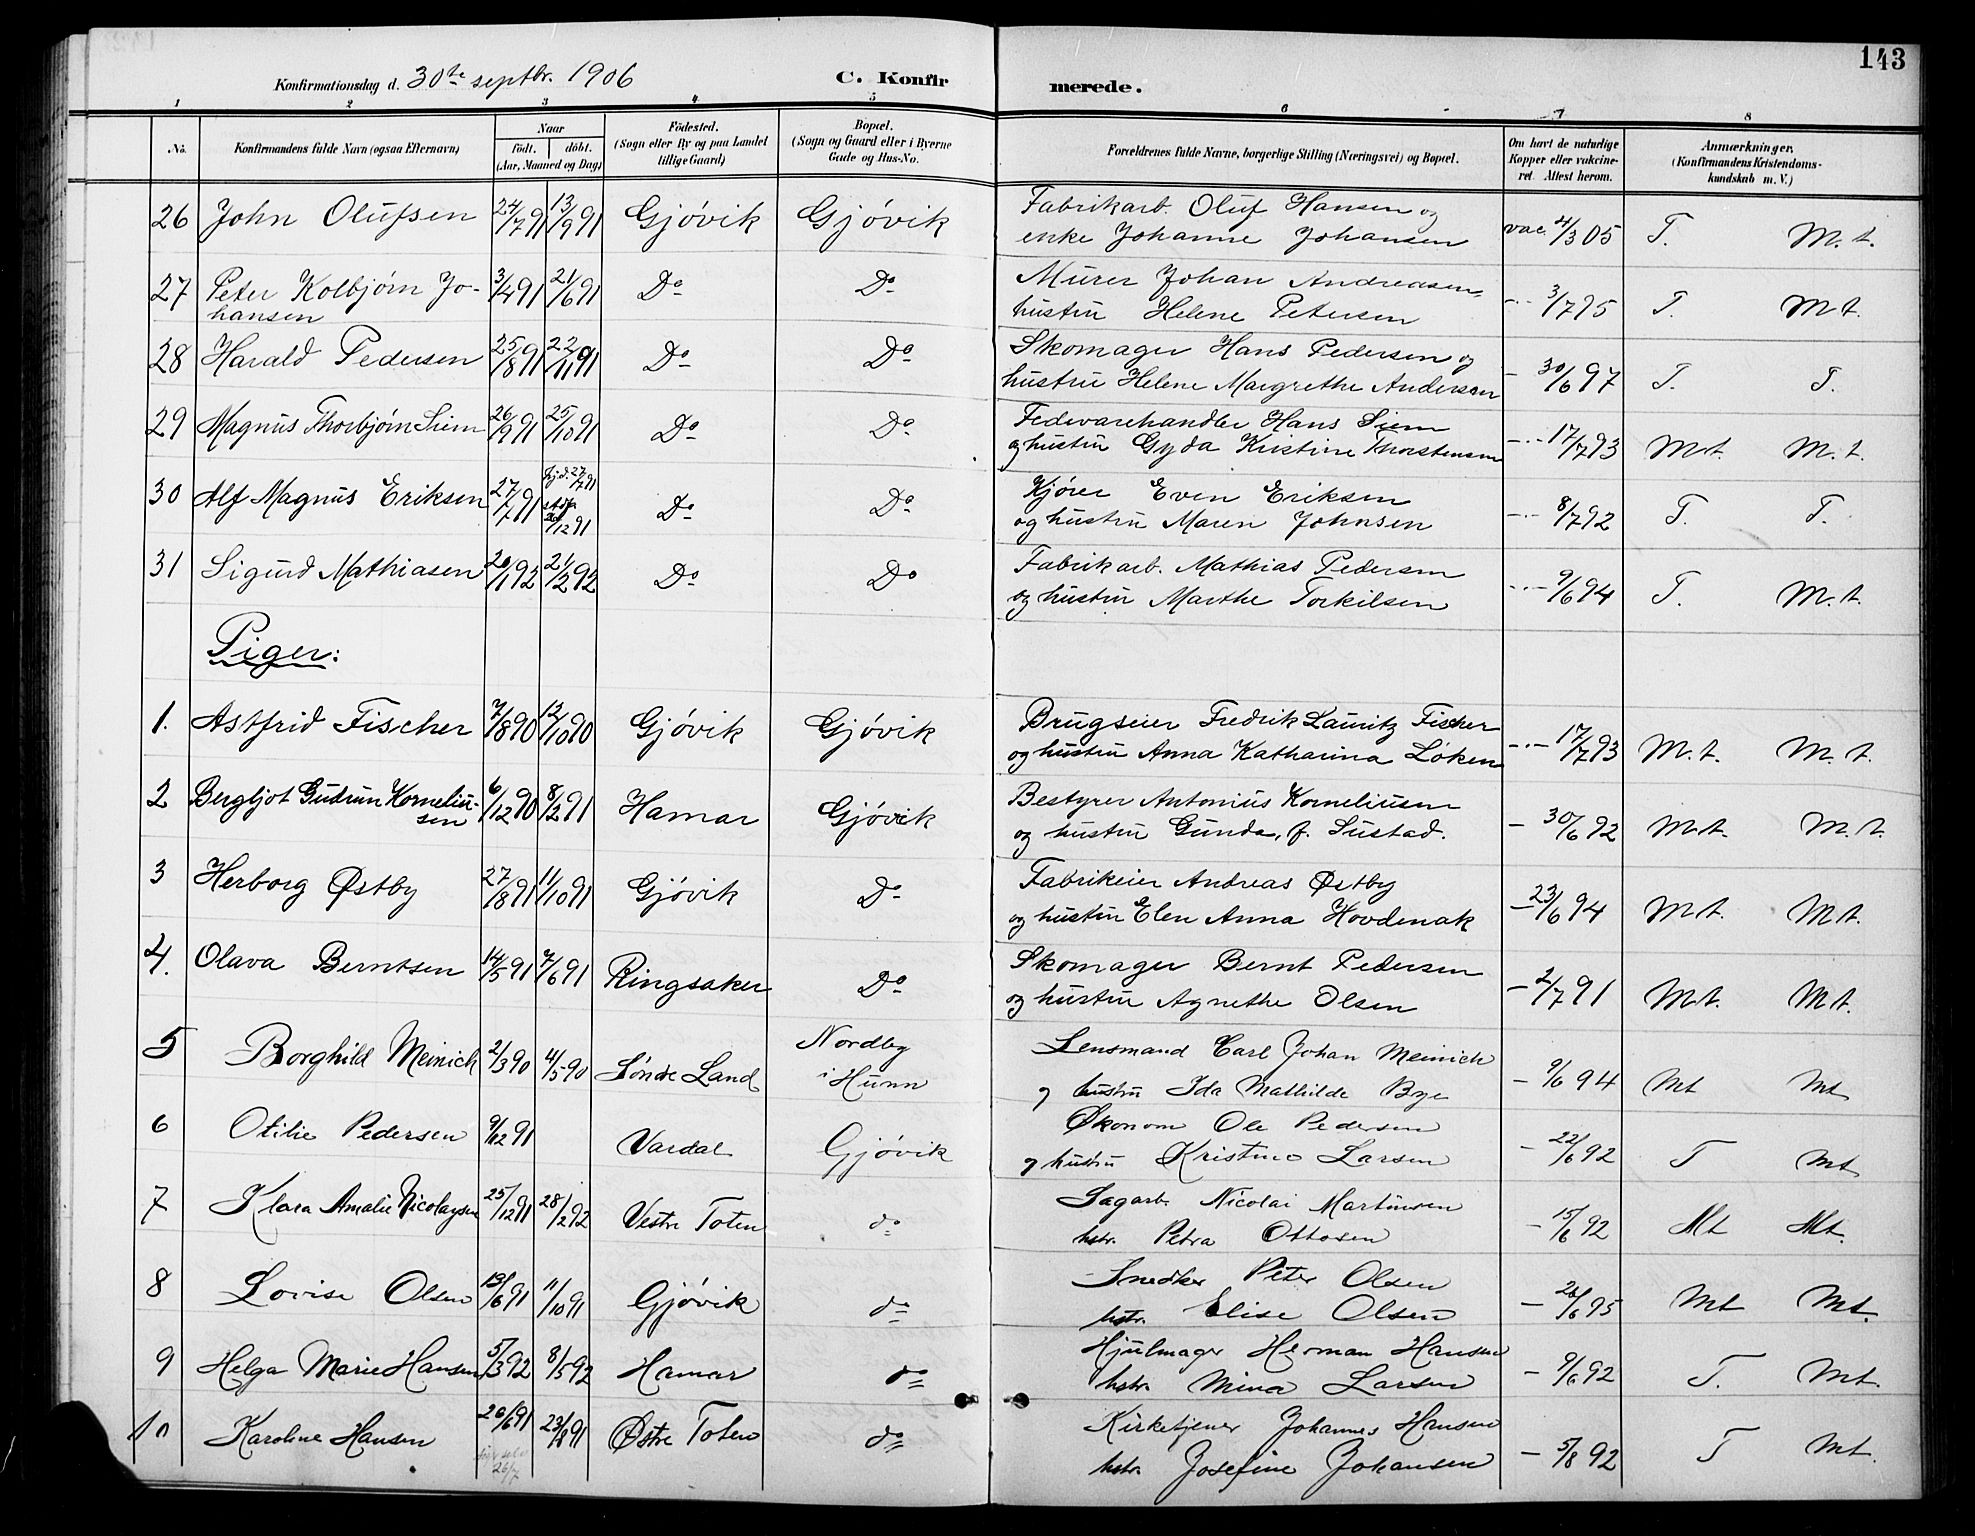 143
Konfirmationsdag d. 30te septbr. 1906 C. Konfirmerede.
1 2 3 4 5 6 7 8
No. Konfirmandens fulde Navn (ogsaa Efternavn) Naar födt. döbt. (Aar, Maaned og Dag) Födested. (Sogn eller By og paa Landet tillige Gaard) Bopæl. (Sogn og Gaard eller i Byerne Gade og Hus-No. Forældrenes fulde Navne, borgerlige Stilling (Næringsvei) og Bopæl. Om havt de naturlige Kopper eller vaccineret. Attest herom. Anmærkninger. (Konfirmandens Kristendomskundskab m. V.)
26 John Olufsen 24/7 91 13/9 91 Gjövik Gjövik Fabrikarb. Oluf Hansen og
enke Johanne Johansen vac. 4/3 05 T. M. t.
27 Peter Kolbjørn Jo- 3/4 91 21/6 91 Do Do Murer Johan Andreasen,
hansen hustru Helene Petersen -"- 3/7 95 T. M t.
28 Harald Pedersen 25/8 91 22/11 91 Do Do Skomager Hans Pedersen og
hustru Helene Margrethe Andersen - 30/6 97 T. T.
29 Magnus Thorbjørn Siem 26/9 91 25/10 91 Do Do Fedevarehandler Hans Siem
og hustru Gyda Kristine Thorstensen -"- 17/7 93 M t. M. t.
30 Alf Magnus Eriksen 27/7 91 Hjd. 27/7 91 /12 91 Do Do Kjører Even Eriksen
og hustru Maren Johnsen -"- 8/7 92 T. T.
31 Sigurd Mathiasen 20/1 92 21/2 92 Do Do Fabrikarb. Mathias Pedersen
og hustru Marthe Torkilsen -"- 9/6 94 T. M. t.
Piger:
1. Astfrid Fischer 7/8 90 12/10 90 Gjövik Gjövik Brugseier Fredrik Lauritz Fischer
og hustru Anna Katharina Løken -"- 17/7 93 M. t. M. t.
2 Bergljot Gudrun Korneliu- 6/12 90 8/2 91 Hamar Gjövik Bestyrer Antonius Korneliusen
sen og hustru Gunda, f. Sustad. - 30/6 92 M t. M. t.
3 Herborg Østby 27/8 91 11/10 91 Gjövik Do Fabrikeier Andreas Østby
og hustru Elen Anna Hovdenak - 23/6 94 M t. M t.
4. Olava Berntsen 14/5 91 7/6 91 Ringsaker Do Skomager Bernt Pedersen
og hustru Agnethe Olsen - 2/7 91 M t. M t.
5 Borghild Meinich 2/3 90 4/5 90 Søndre Land Nordby Lensmand Carl Johan Meinich
i Hunn og hustru Ida Mathilde Bye - 9/6 94 Mt Mt
6 Otilie Pedersen 9/12 91 Vardal Gjövik Økonom Ole Pedersen
og hustru Kristine Larsen - 22/6 92 T Mt
7 Klara Amalie Nicolaysen 25/12 91 28/2 92 Vestre Toten do Sagarb. Nicolai Martinsen
hstr. Petra Ottosen - 15/6 92 Mt Mt.
8 Lovise Olsen 13/6 91 11/10 91 Gjövik do Snedker Peter Olsen
hstr. Elise Olsen - 26/6 95 Mt Mt.
9 Helga Marie Hansen 5/3 92 8/5 92 Hamar do Hjulmager Herman Hansen
hstr. Mina Larsen - 9/6 92 T. Mt.
10 Karoline Hansen 26/6 91 23/8 91 Østre Toten do Kirketjener Johannes Hansen
26/7 hstr. Josefine Johansen - 5/8 92 T Mt.